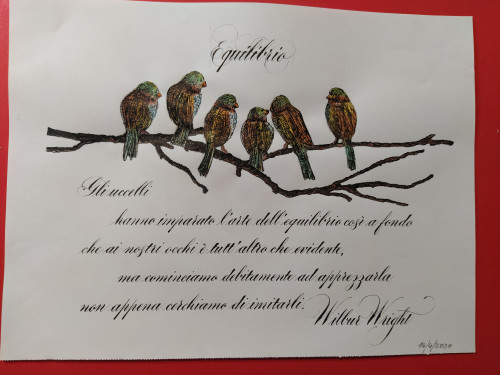 Equilibrio
Gli uccelli
hanno imparato l'arte dell'equilibrio così a fondo
che ai nostri occhi è tutt'altro che evidente,
ma cominciamo debitamente ad apprezzarla
non appena cerchiamo di imitarli.
Wilbur Wright